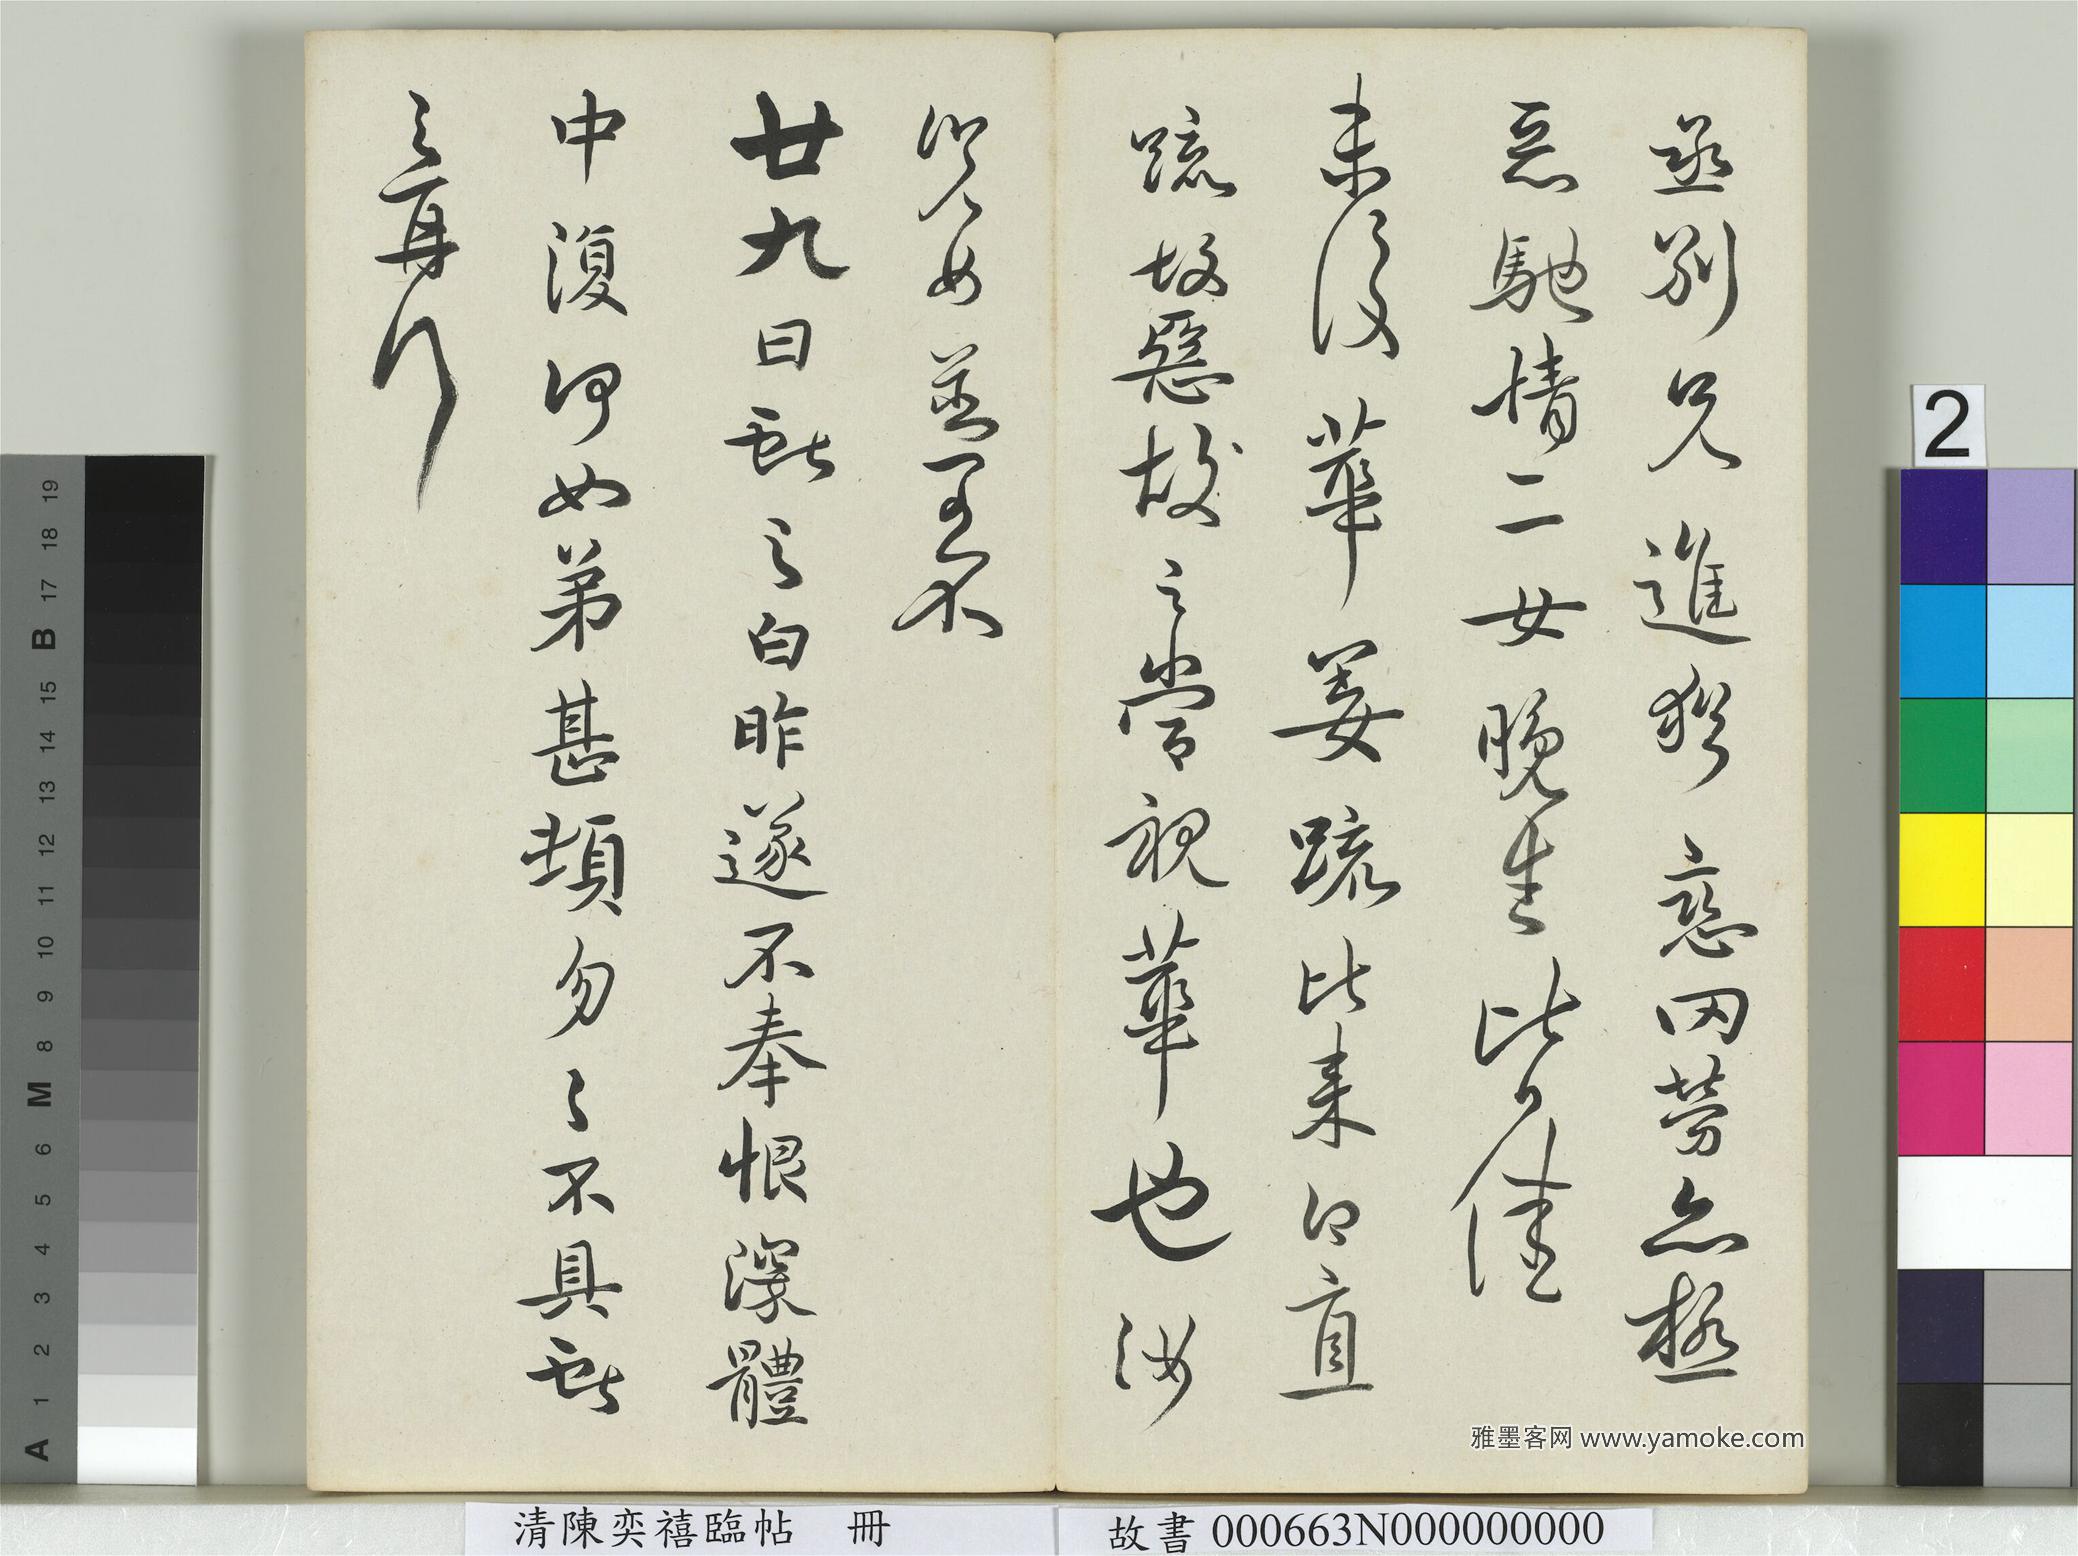 別兄進猶戀罔勞亦極
馳情二女晚生皆佳
未復華姜疏比來直
疏故惡故之當視華也汝
如並可不
廿九日獻之白昨遂不奉恨深體
中復何如弟甚頓匆々不具獻
之再拜
2
雅墨客网 www.yamoke.com
清陳奕禧臨帖 冊
故書 000663N000000000
A 1 2 3 4 5 6 M 8 9 10 11 12 13 14 15 B 17 18 19